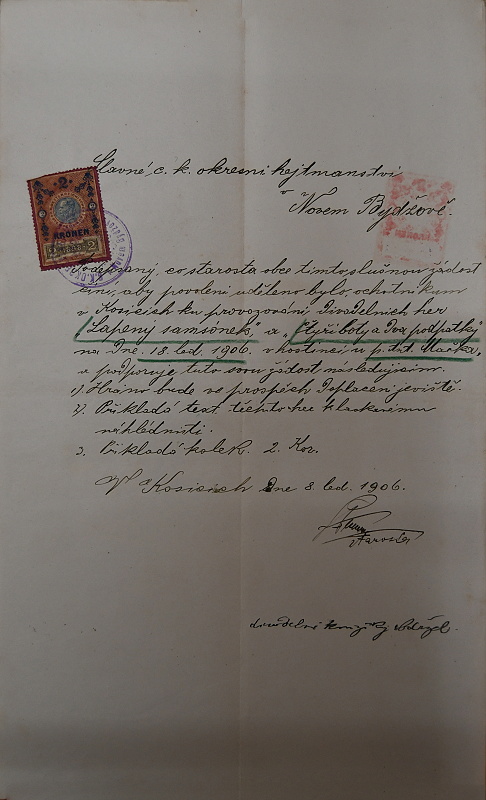 Slavné c. k. okresní hejtmanství
v
Novém Bydžově.
2
KRONEN
2
Podepsaný, co starosta obce tímto slušnou žádost
činí, aby povolení uděleno bylo, ochotníkům
v Kosicích ku provozování divadelních her
"Lapený samsonek" a "Čtyři boty a dva podpatky"
na dne 18. led. 1906. v hostinci u p. Ant. Maška,
a podporuje tuto svou žádost následujícím.
1) Hráno bude ve prospěch doplacení jeviště.
2) Přikládá text těchto her k laskavému
náhlédnutí.
3. Přikládá kolek. 2. Kor.
V Kosicích dne 8. led. 1906.
starosta
divadelní